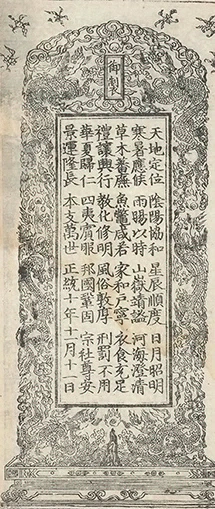 御製
天地定位 陰陽協和 星辰順度 日月昭明
寒暑應候 雨暘以時 山嶽靖謐 河海澄清
草木蕃廡 魚鼈咸若 家和戶寧 衣食充足
禮讓興行 教化修明 風俗敦厚 刑罰不用
華夏歸仁 四夷賓服 邦國鞏固 宗社尊安
景運隆長 本支萬世 正統十年十一月十一日